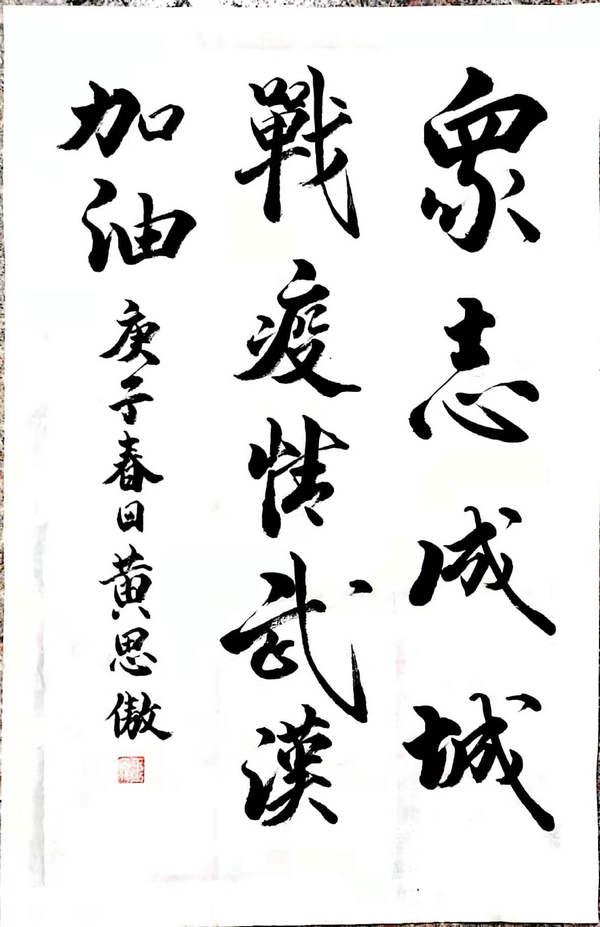 眾志成城
戰疫情武漢
加油 庚子春日黃思傲